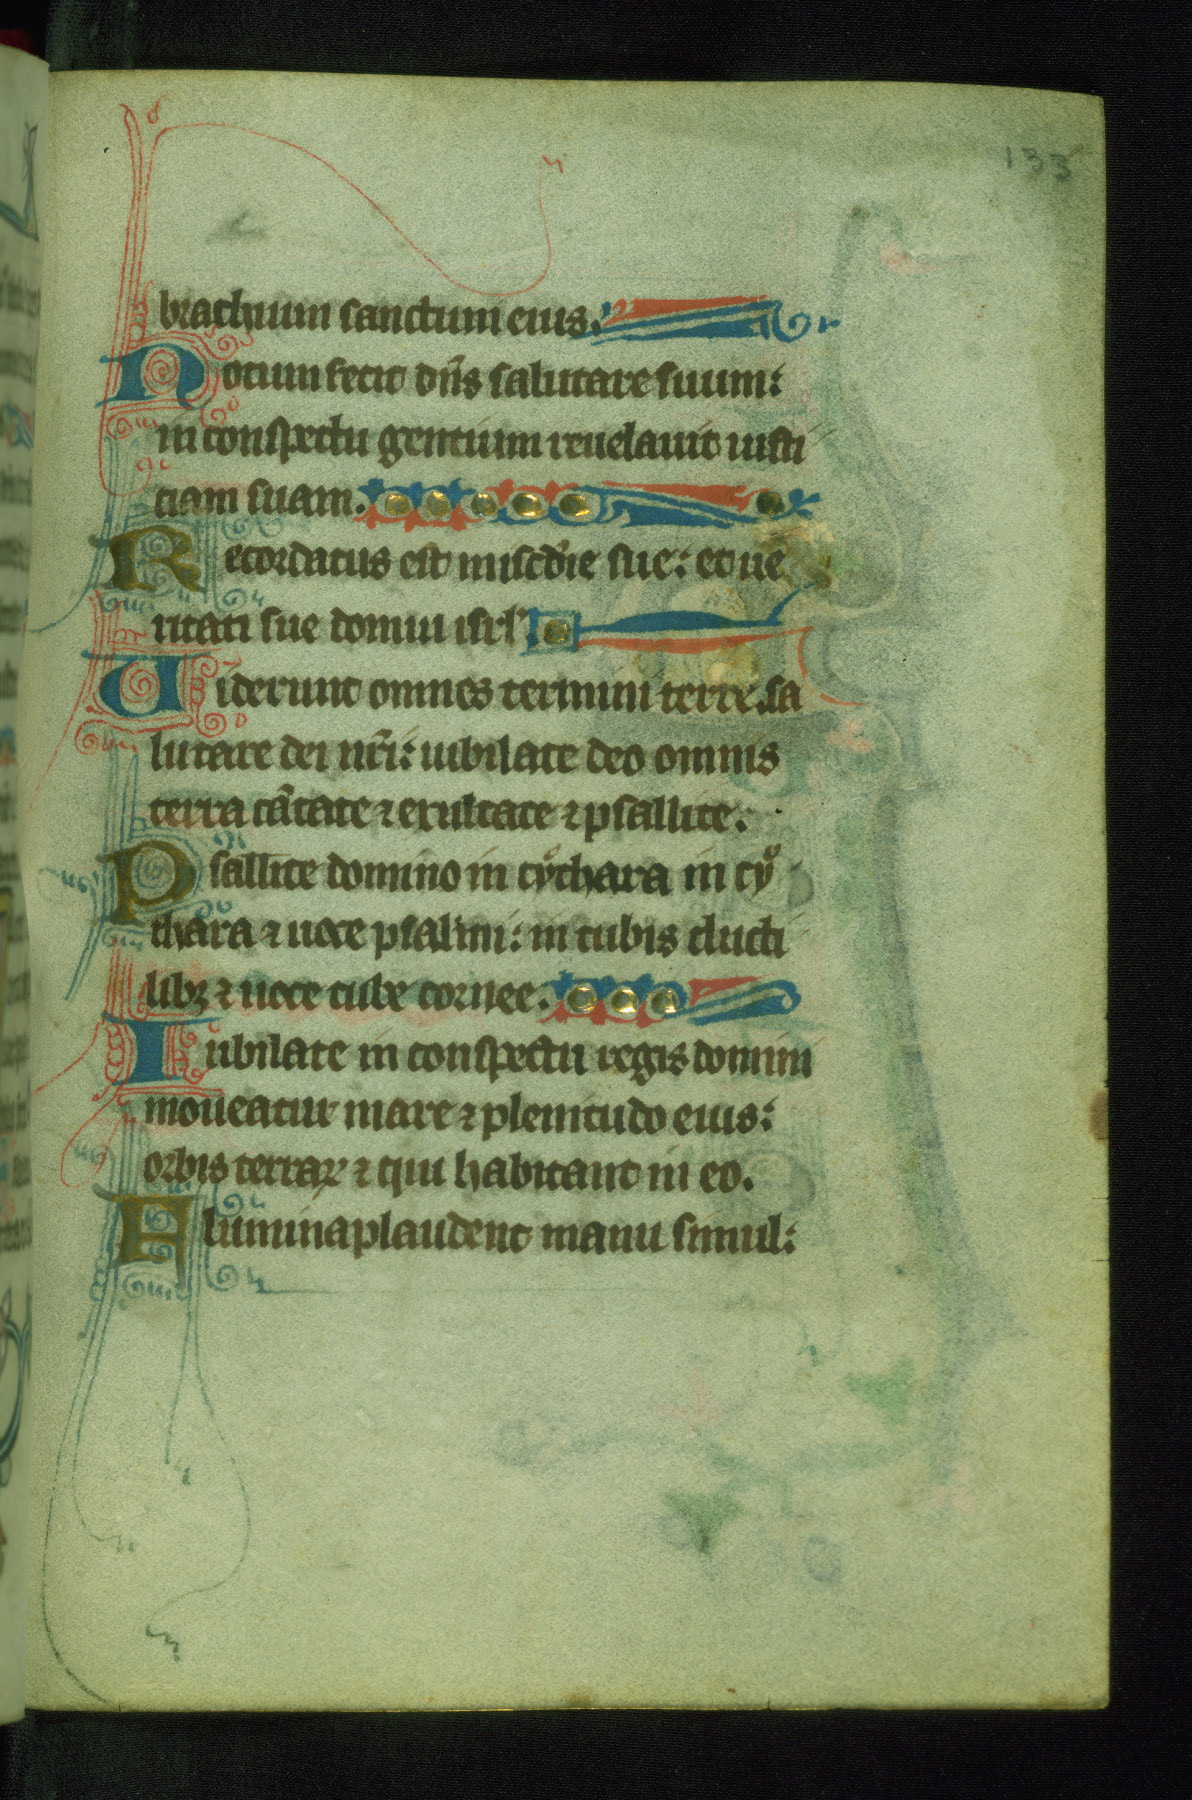 133
brachium sanctum eius.
Notum fecit dñs salutare suum:
in conspectu gentium reuelauit iusti
ciam suam.
Recordatus est misc̄die sue: et ue
ritati sue domui isrl'
Uiderunt omnes termini terre sa
lutare dei nr̄i: iubilate deo omnis
terra cātate ⁊ exultate ⁊ psallite.
Psallite domino in cythara in cy
thara ⁊ uoce psalmi: in tubis ducti
libꝫ ⁊ uoce tube cornee.
Iubilate in conspectu regis domini
moueatur mare ⁊ plenitudo eius:
orbis terraꝝ ⁊ qui habitant in eo.
Flumina plaudent manu simul: